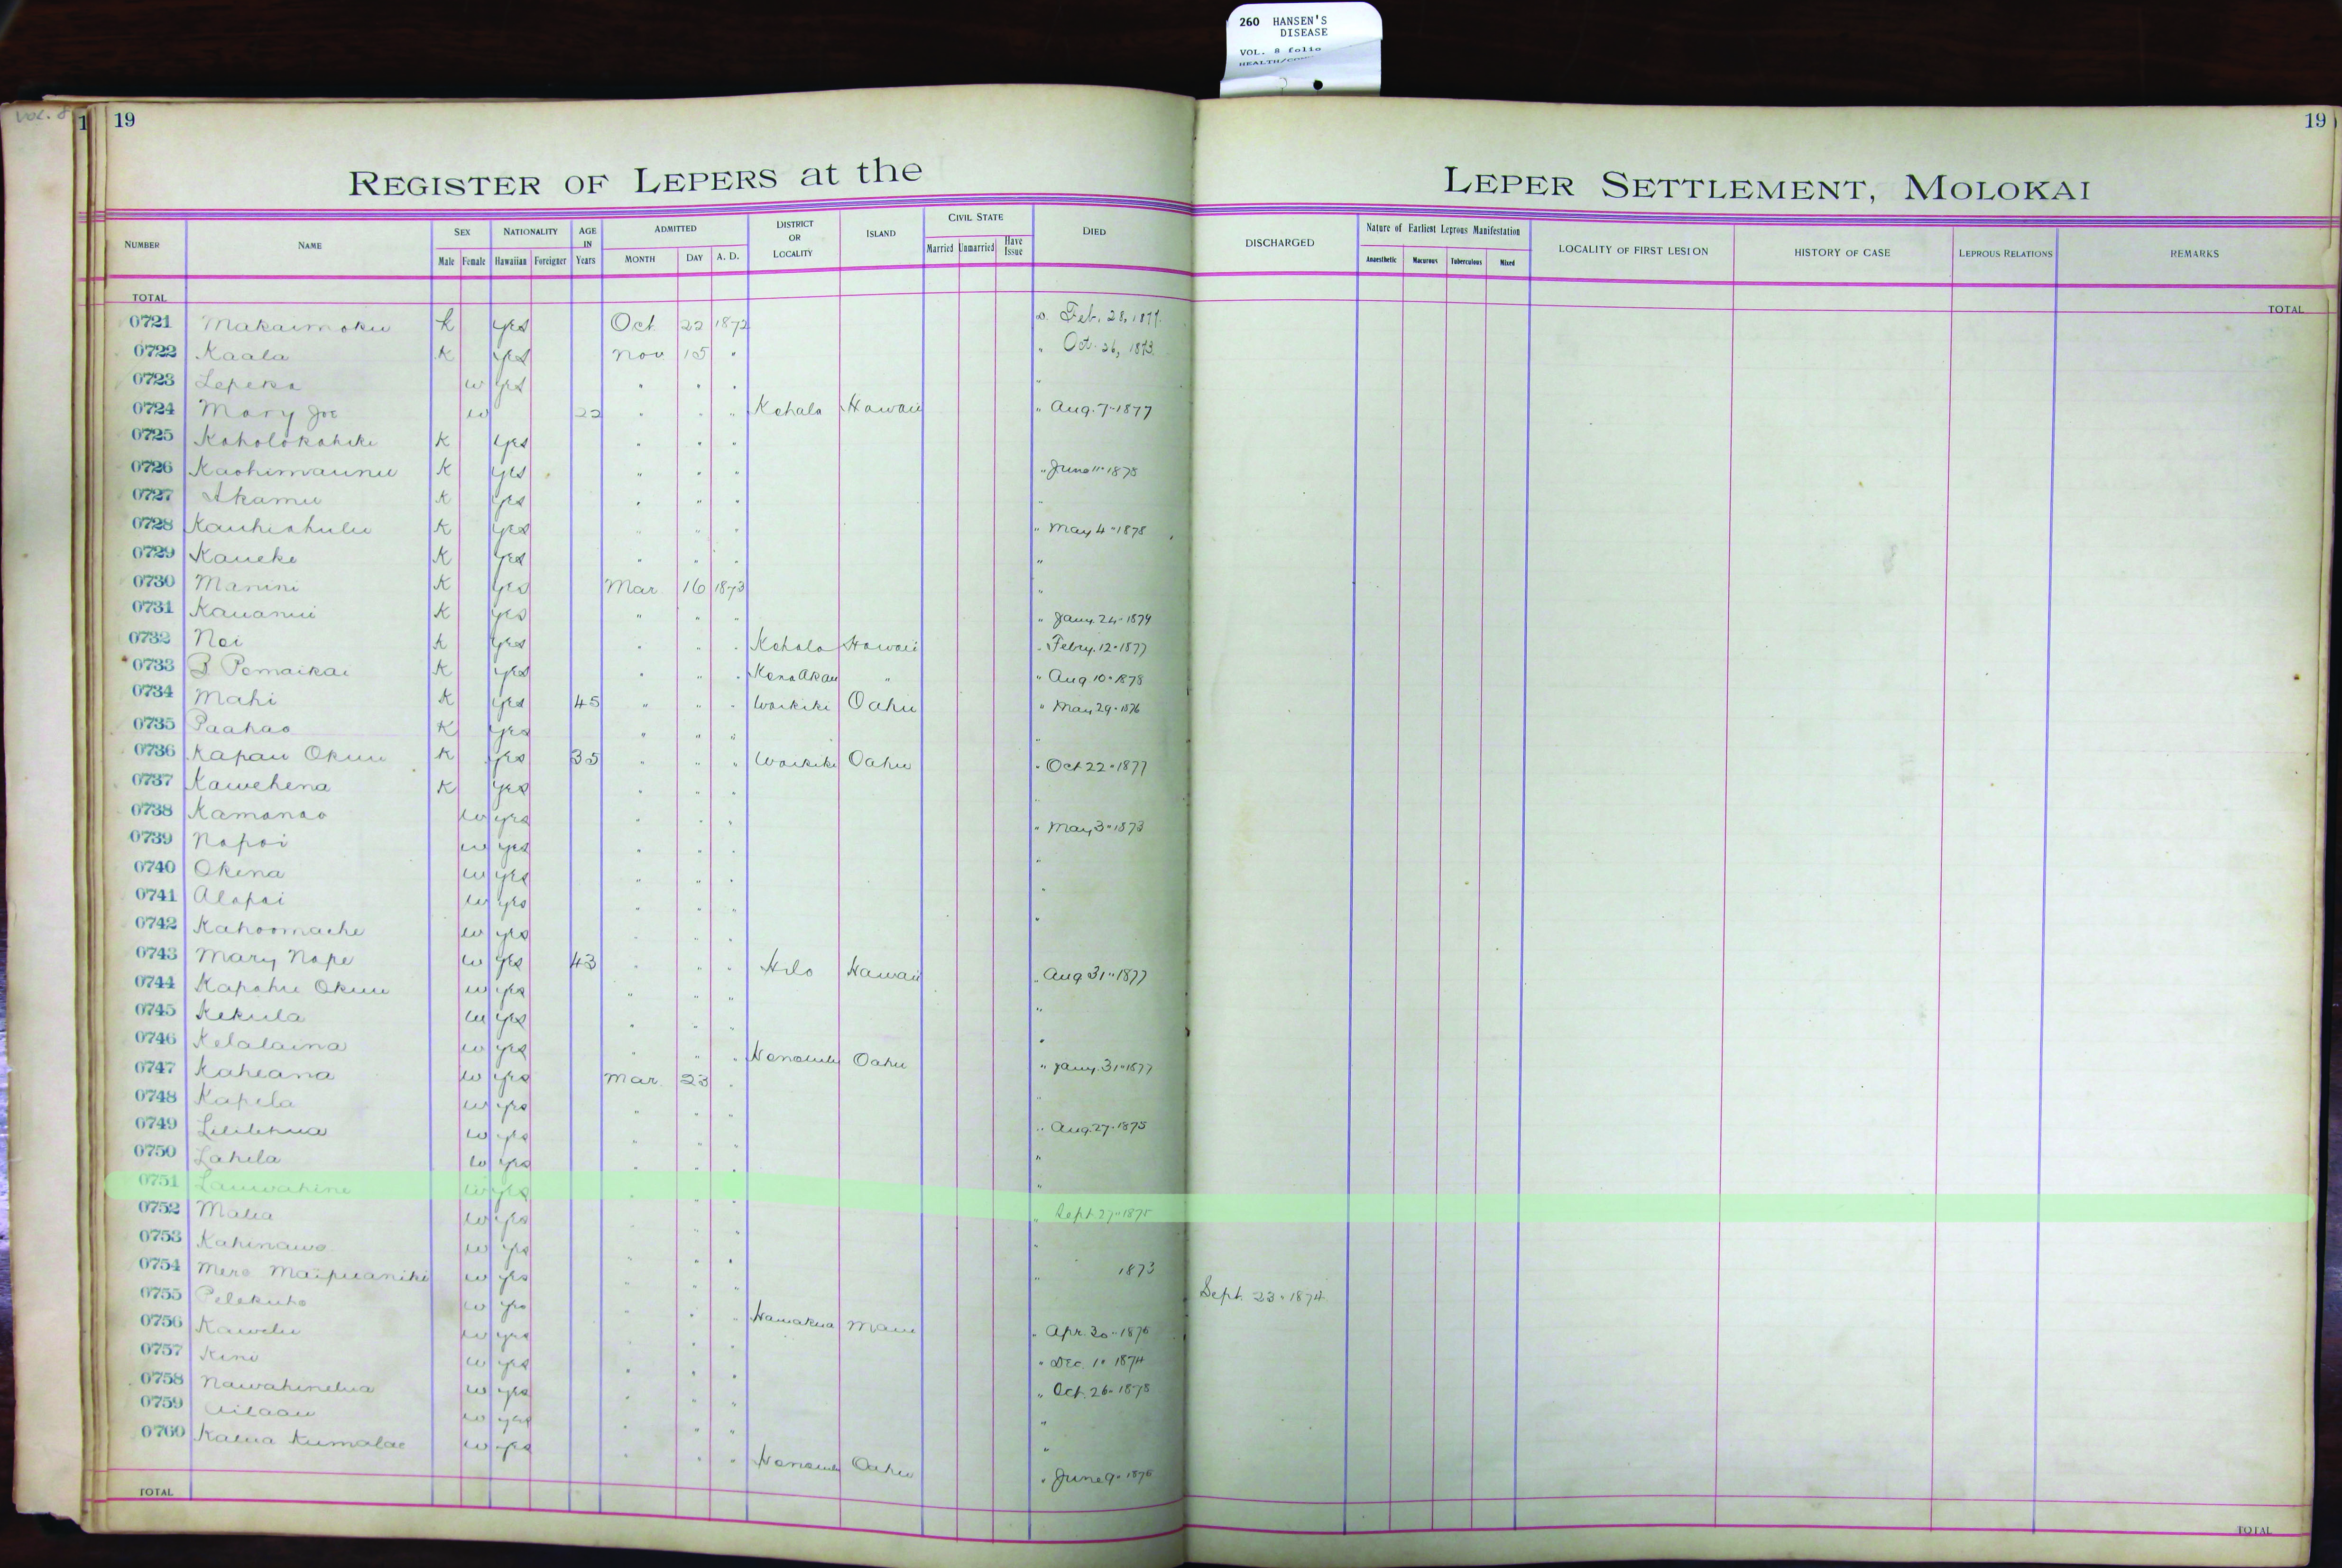 260 HANSEN'S
DISEASE
VOL. 8 folio
Vol. 8
1 19
19
REGISTER OF LEPERS at the LEPER SETTLEMENT, MOLOKAI
NUMBER NAME SEX Male Female NATIONALITY Hawaiian Foreigner AGE IN Years ADMITTED MONTH DAY A. D. DISTRICT OR LOCALITY ISLAND CIVIL STATE Married Unmarried Have Issue DIED DISCHARGED Nature of Earliest Leprous Manifestation Anaesthetic Macurous Tuberculous Mixed LOCALITY OF FIRST LESION HISTORY OF CASE LEPROUS RELATIONS REMARKS
TOTAL TOTAL
0721 Makaimoku K yes Oct 22 1872 Feb. 28, 1877.
0722 Kaala K yes Nov 15 " " Oct. 26, 1873.
0723 Lepeka w yes " " " "
0724 Mary Joe w 22 " " " Kohala Hawaii " Aug. 7 " 1877
0725 Koholokahiki K yes " " "
0726 Kaohimaunu K yes " " " " June 11 " 1878
0727 Akamu K yes " " " "
0728 Kauhiahulu K yes " " " " May 4 " 1878
0729 Kaueke K yes " " " "
0730 Manini K yes Mar 16 1873 "
0731 Kauanui K yes " " " " Jany. 24 " 1879
0732 Noi K yes " " " Kohala Hawaii " Febry. 12 " 1877
0733 B Pomaikai K yes " " " Kona Akau " " Aug 10 " 1878
0734 Mahi K yes 45 " " " Waikiki Oahu " May 29 " 1876
0735 Paahao K yes " " " "
0736 Kapau Okuu K yes 35 " " " Waikiki Oahu " Oct 22 " 1877
0737 Kawehena K yes " " " "
0738 Kamanao w yes " " " " May 3 " 1873
0739 Napoi w yes " " " "
0740 Okina w yes " " " "
0741 Alapai w yes " " " "
0742 Kahoomache w yes " " "
0743 Mary Nape w yes 43 " " " Hilo Hawaii " Aug 31 " 1877
0744 Kapahu Okuu w yes " " " "
0745 Kekula w yes " " " "
0746 Kelalaina w yes " " " Honolulu Oahu " Jany. 31 " 1877
0747 Kaheana w yes Mar. 23 " "
0748 Kapela w yes " " " " Aug. 27 " 1875
0749 Liilihua w yes " " " "
0750 Lahela w yes " " " "
0751 Lauwahine w yes " " " " Sept. 27 " 1875
0752 Malia w yes " " " "
0753 Kahinawe w yes " " " " 1873
0754 Mere Maipuaniki w yes " " " Sept. 23 " 1874
0755 Pelekuho w yes " " " Hamakua Maui " Apr. 30 " 1876
0756 Kawelu w yes " " " " Dec. 1 " 1874
0757 Kini w yes " " " " Oct. 26 " 1878
0758 Nawahinelua w yes " " " "
0759 Ailaau w yes " " " "
0760 Kalua Kumalae w yes " " " Honolulu Oahu " June 9 " 1876
TOTAL TOTAL